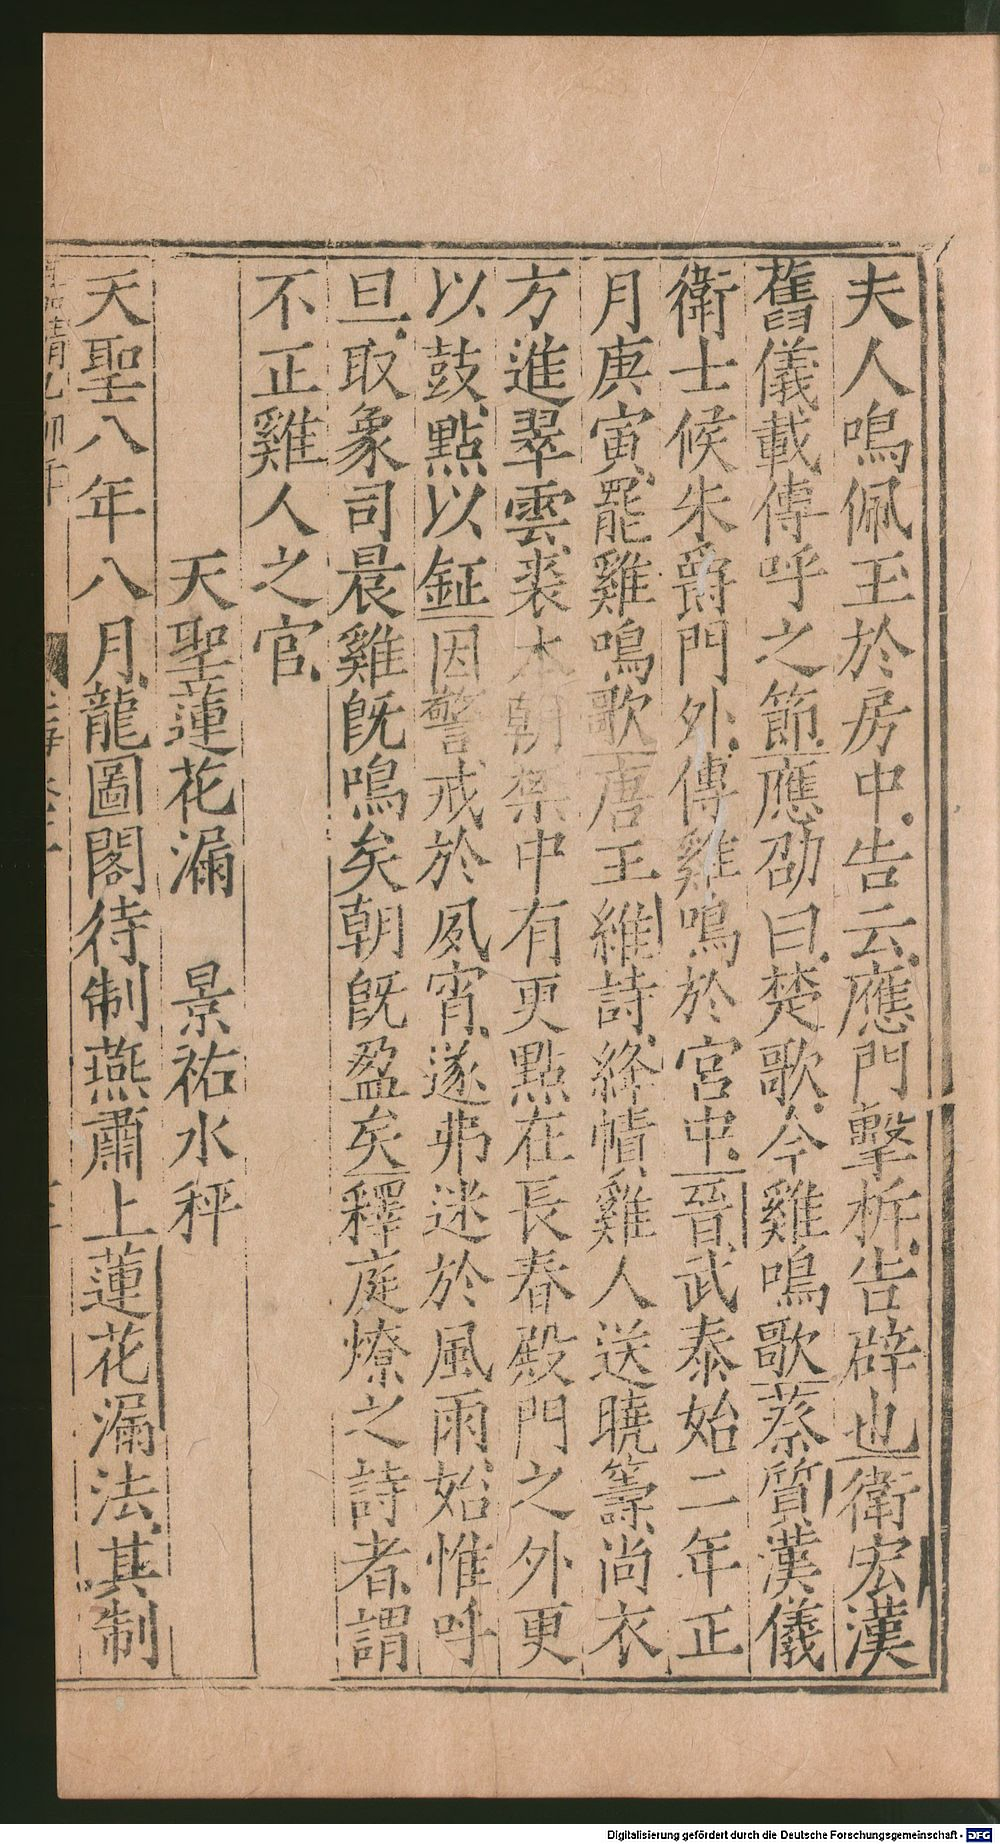 夫人鳴佩玉於房中告云應門擊柝告辟也衛宏漢
舊儀載傳呼之節應劭曰楚歌今雞鳴歌蔡質漢儀
衛士候朱爵門外傳雞鳴於宮中晉武泰始二年正
月庚寅罷雞鳴歌唐王維詩絳幘雞人送曉籌尚衣
方進翠雲裘本朝禁中有更點在長春殿門之外更
以鼓點以鉦因警戒於夙宵遂弗迷於風雨始惟呼
旦取象司晨雞旣鳴矣朝旣盈矣釋庭燎之詩者謂
不正雞人之官
天聖蓮花漏 景祐水秤
天聖八年八月龍圖閣待制燕肅上蓮花漏法其制
Digitalisierung gefördert durch die Deutsche Forschungsgemeinschaft - DFG